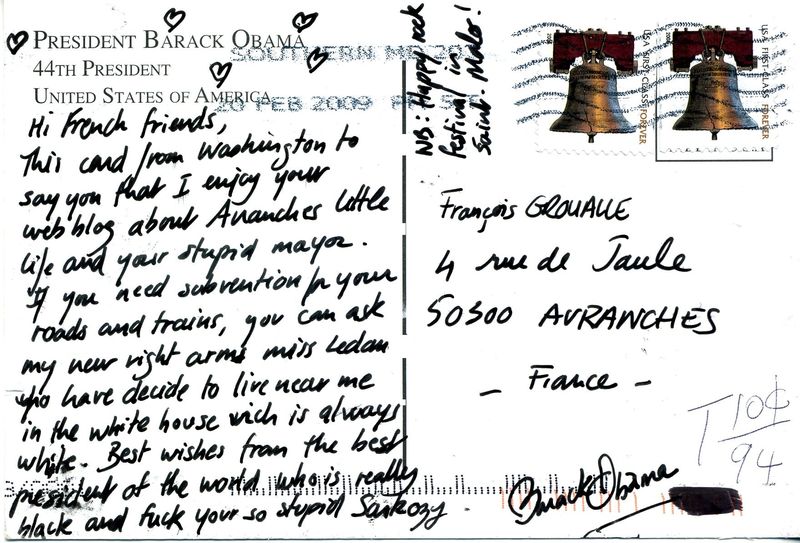 PRESIDENT BARACK OBAMA
44TH PRESIDENT
UNITED STATES OF AMERICA
SOUTHERN MD 20
20 FEB 2009 PM
Hi French friends,
This card from Washington to
say you that I enjoy your
web blog about Avranches little
life and your stupid mayor.
If you need subvention for your
roads and trains, you can ask
my new right arms miss Ledan
who have decide to live near me
in the white house wich is always
white. Best wishes from the best
president of the world who is really
black and fuck your so stupid Sarkozy.
NB: Happy rock
festival in
Saint-Malo!
USA FIRST-CLASS FOREVER
USA FIRST-CLASS FOREVER
François GROUALLE
4 rue de Taule
50300 AVRANCHES
- France -
T 10¢
94
Barack Obama